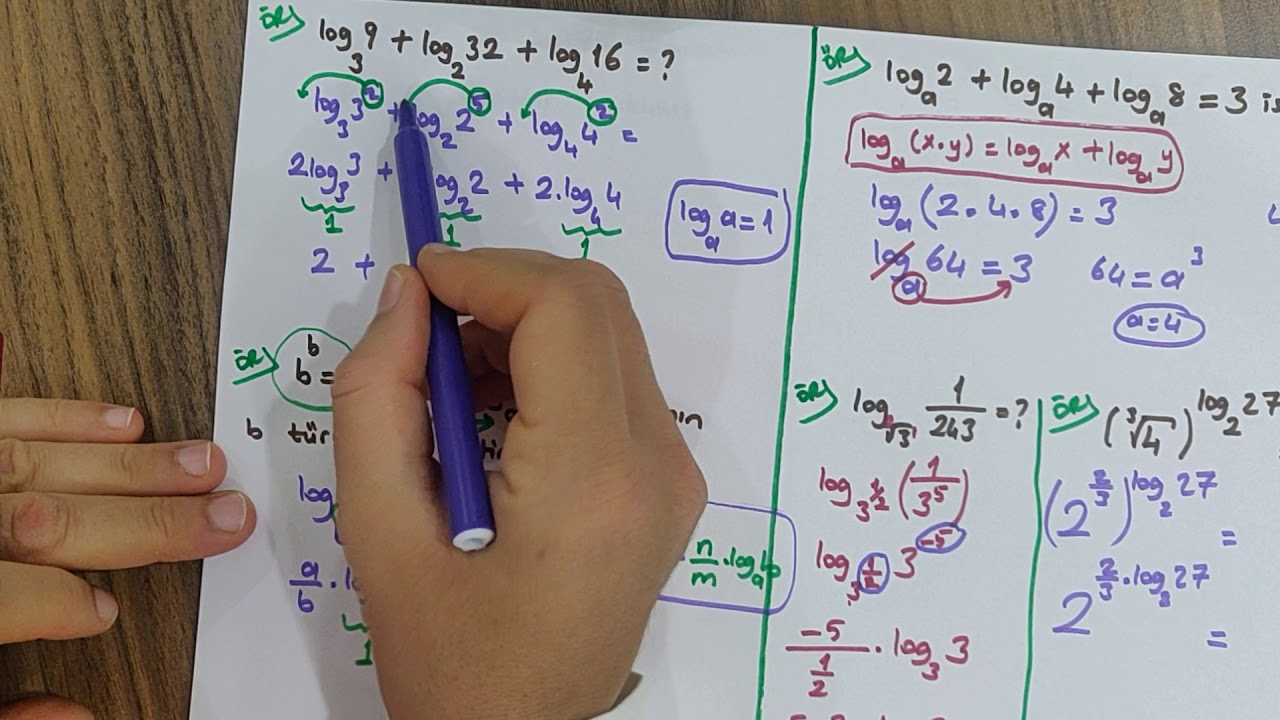 ÖR) log₃9 + log₂32 + log₄16 = ?
log₃3² + log₂2⁵ + log₄4² =
2log₃3 + log₂2 + 2.log₄4
1 1 1
logₐa = 1
2 +
ÖR) b
b =
b tür
log
a/b .
1
n/m . logₐb
ÖR) logₐ2 + logₐ4 + logₐ8 = 3 is
logₐ(x.y) = logₐx + logₐy
logₐ(2.4.8) = 3
logₐ64 = 3 64 = a³
a = 4
ÖR) log_√3 1/243 = ?
log_3^(1/2) (1/3⁵)
log_3^(1/2) 3⁻⁵
-5/(1/2) . log₃3
ÖR) (³√4)^log₂27
(2^(2/3))^log₂27 =
2^(2/3 . log₂27) =